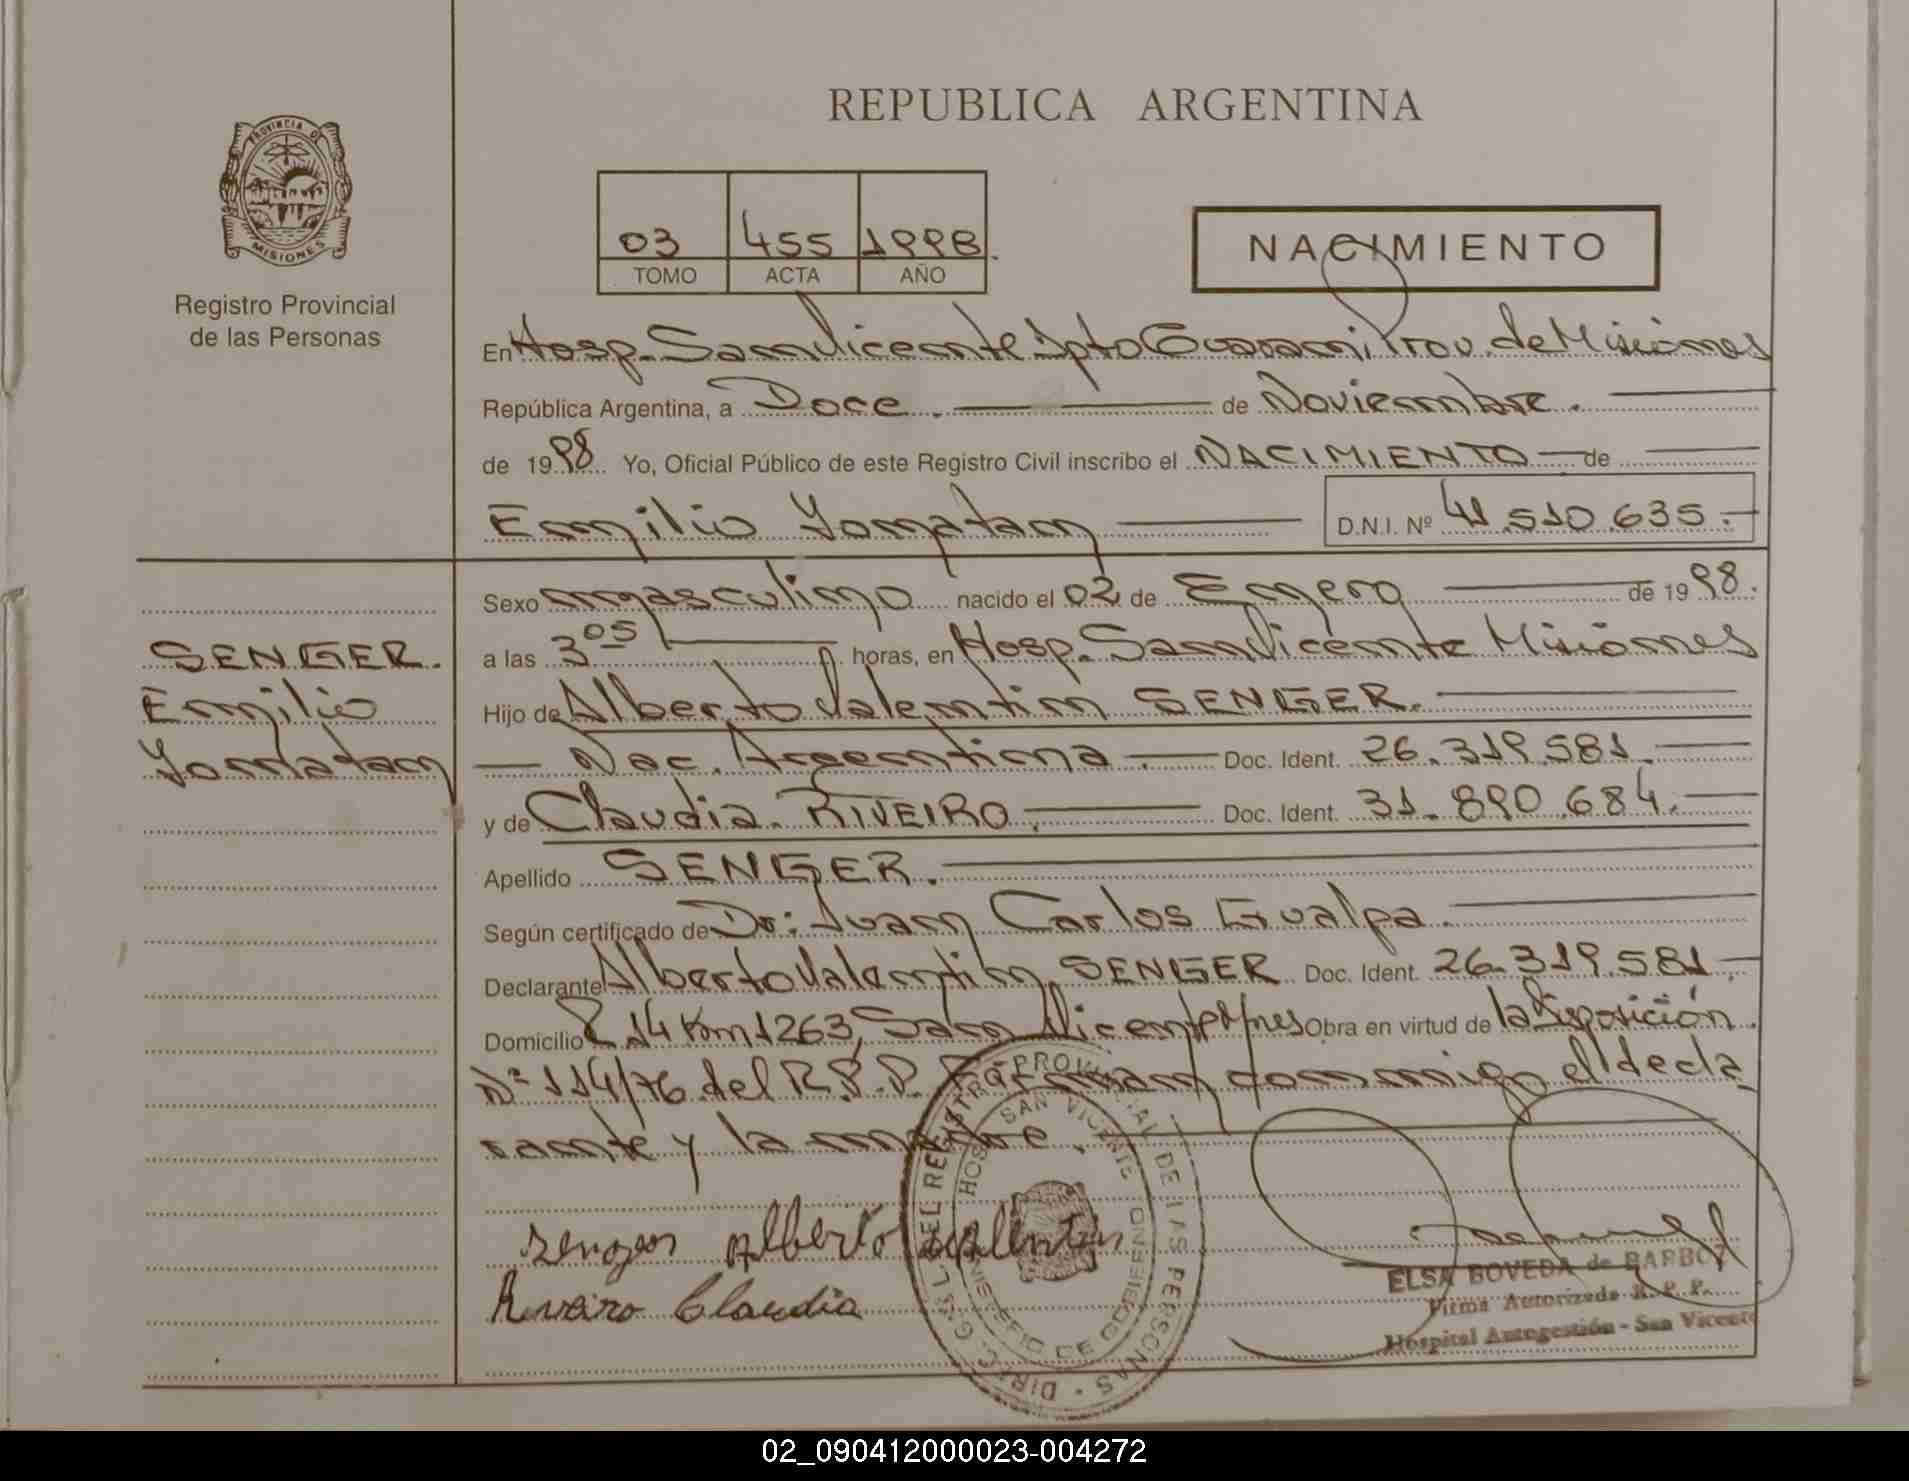 REPUBLICA ARGENTINA
PROVINCIA DE
MISIONES
Registro Provincial
de las Personas
03 455 1998.
TOMO ACTA AÑO
NACIMIENTO
En Hosp. San Vicente Dpto Guarani, Prov. de Misiones
República Argentina, a Doce. de Noviembre.
de 1998 Yo, Oficial Público de este Registro Civil inscribo el NACIMIENTO de
Emilio Yonatan D.N.I. Nº 41.510.635.
Sexo masculino nacido el 02 de Enero de 1998.
a las 3 05 horas, en Hosp. San Vicente Misiones
Hijo de Alberto Valentin SENGER.
Nac. Argentina. Doc. Ident. 26.319.581.
y de Claudia RIVEIRO. Doc. Ident. 31.890.684.
Apellido SENGER.
Según certificado de Dr: Juan Carlos Gualpa.
Declarante Alberto Valentin SENGER Doc. Ident. 26.319.581.
Domicilio R 14 Km 1263, San Vicente Mnes Obra en virtud de la Disposición
Nº 114/76 del R.P.P. Firman conmigo el decla
rante y la madre.
SENGER.
Emilio
Yonatan
Senger Alberto Valentin
Riveiro Claudia
DIREC. GRAL. DEL REGISTRO PROVINCIAL DE LAS PERSONAS
HOSP. SAN VICENTE
MINISTERIO DE GOBIERNO
ELSA BOVEDA de BARBOZ
Firma Autorizada R. P. P.
Hospital Autogestión - San Vicente
02_090412000023-004272